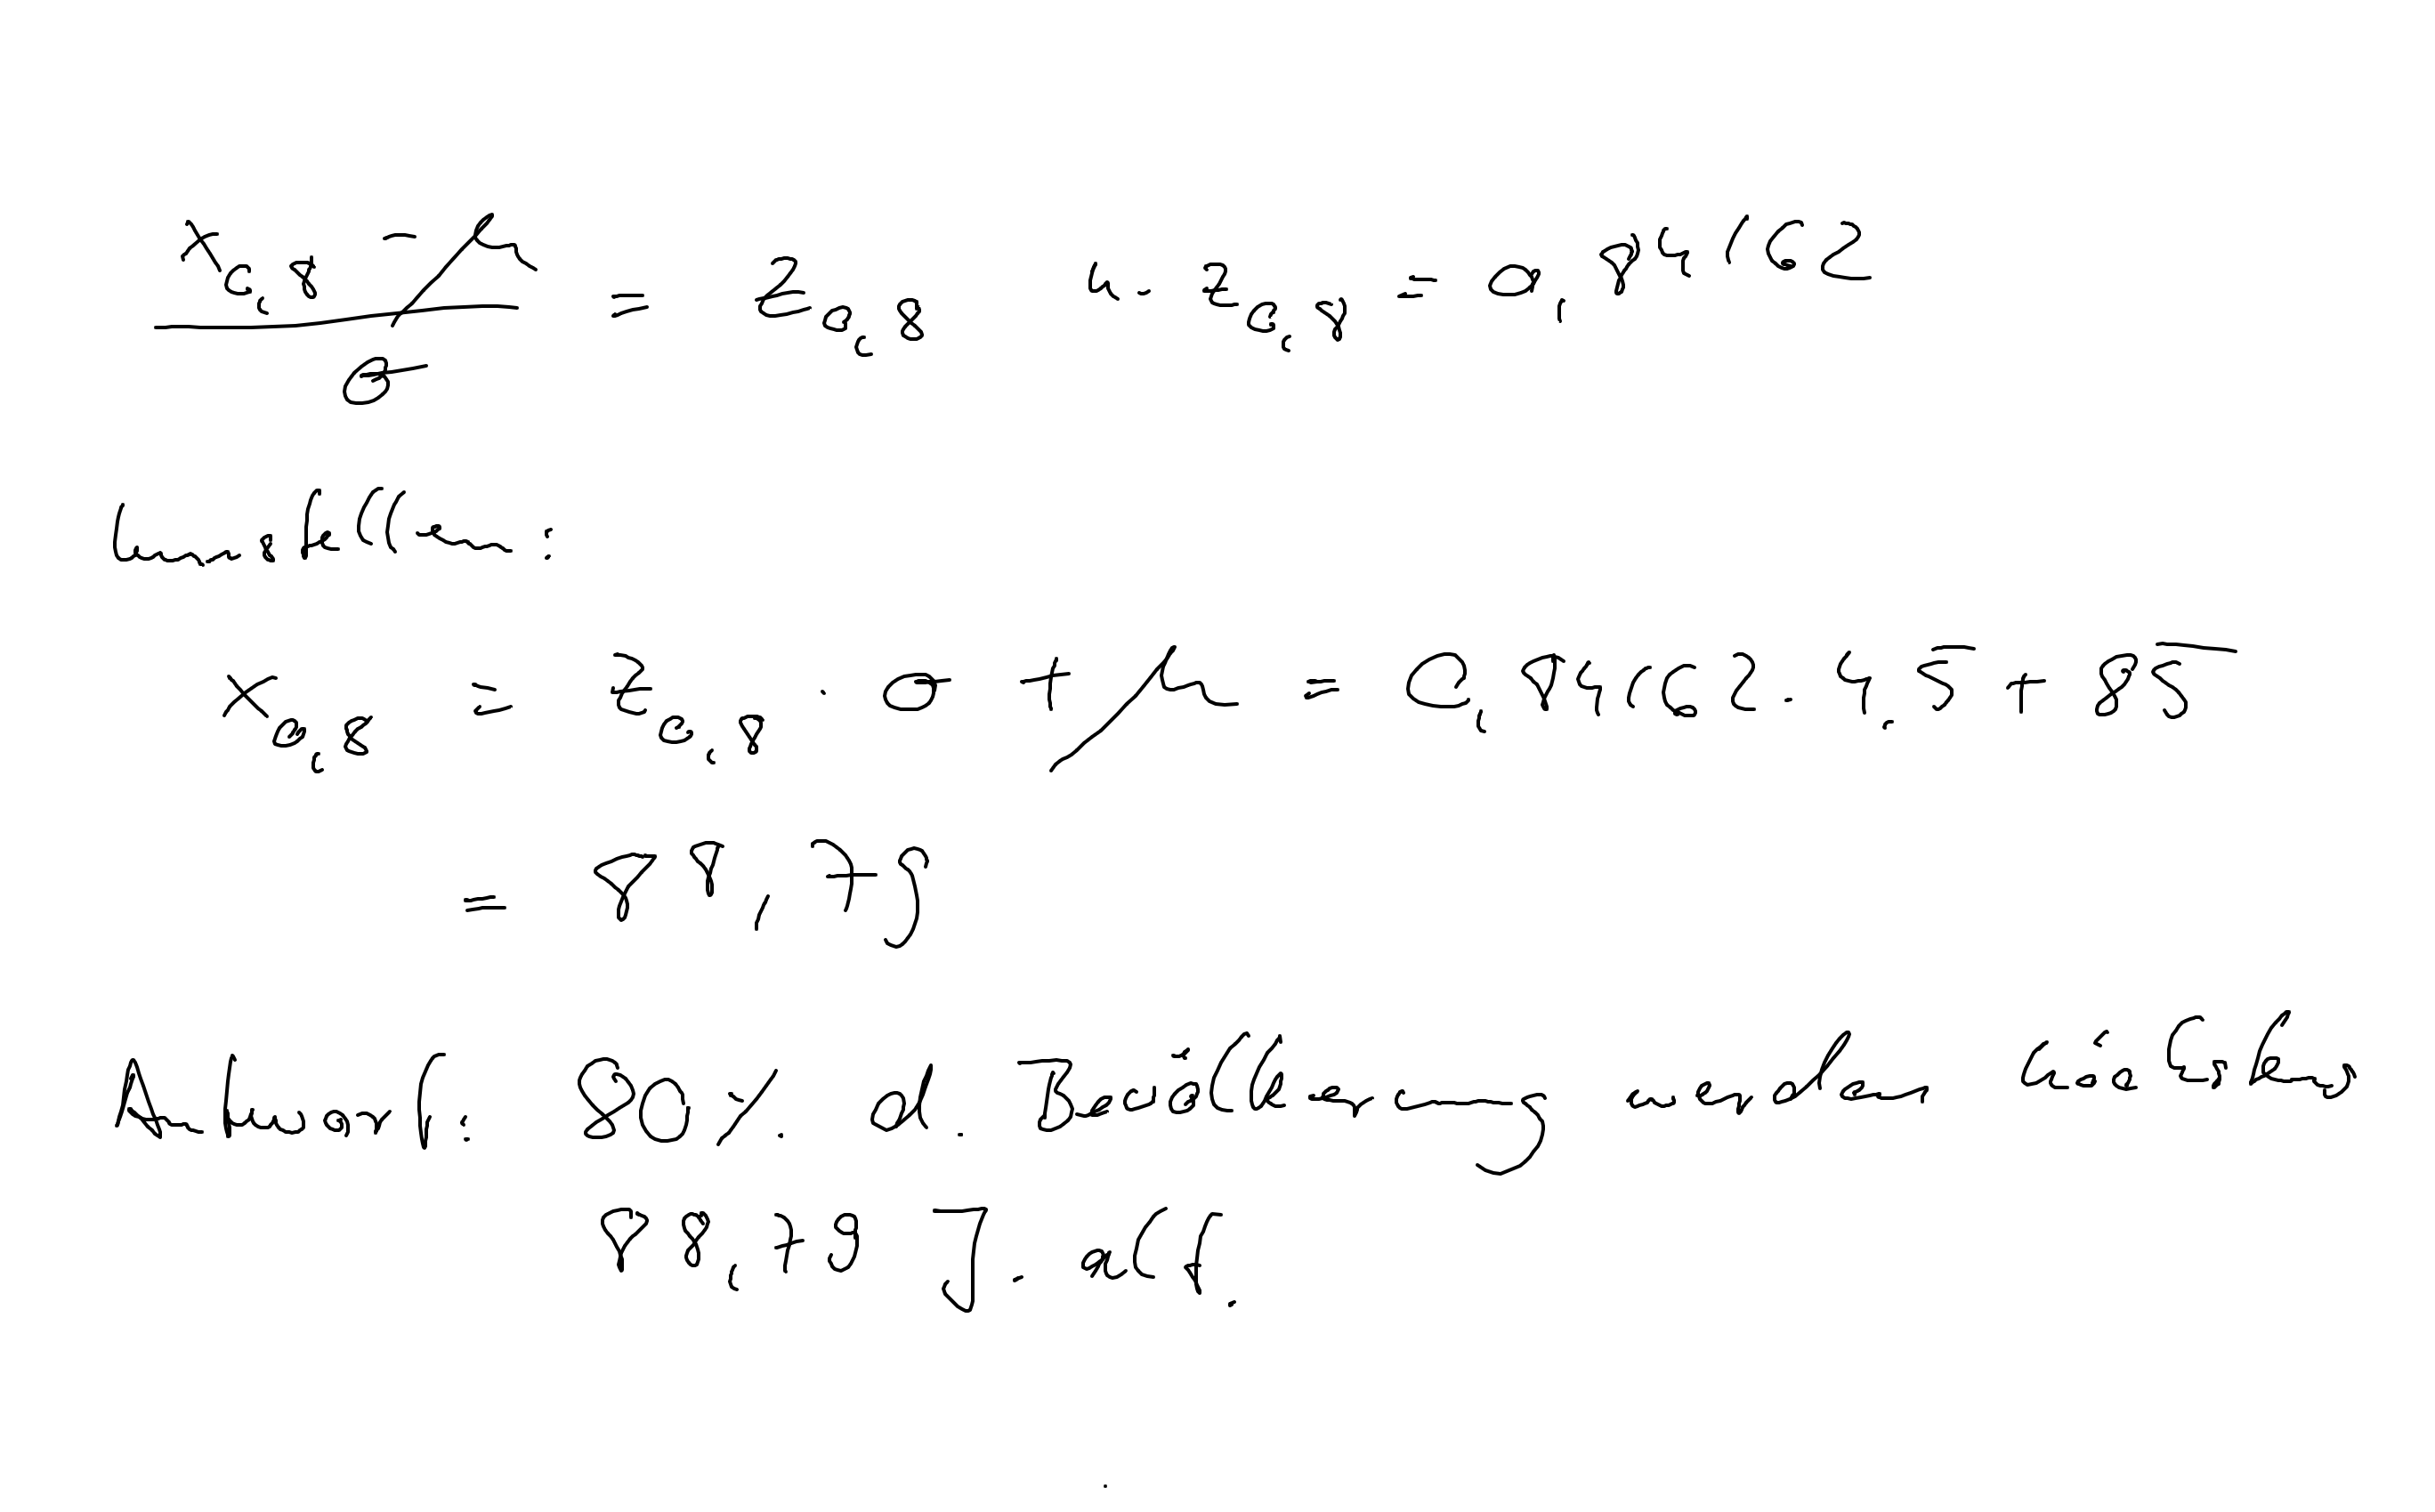 (x_0,8 - μ) / σ = z_0,8 u. z_0,8 = 0,84162
umstellen:
x_0,8 = z_0,8 · σ + μ = 0,84162 · 4,5 + 85
= 88,79
Antwort: 80% d. Bevölkerung werden höchstens
88,79 J. alt.